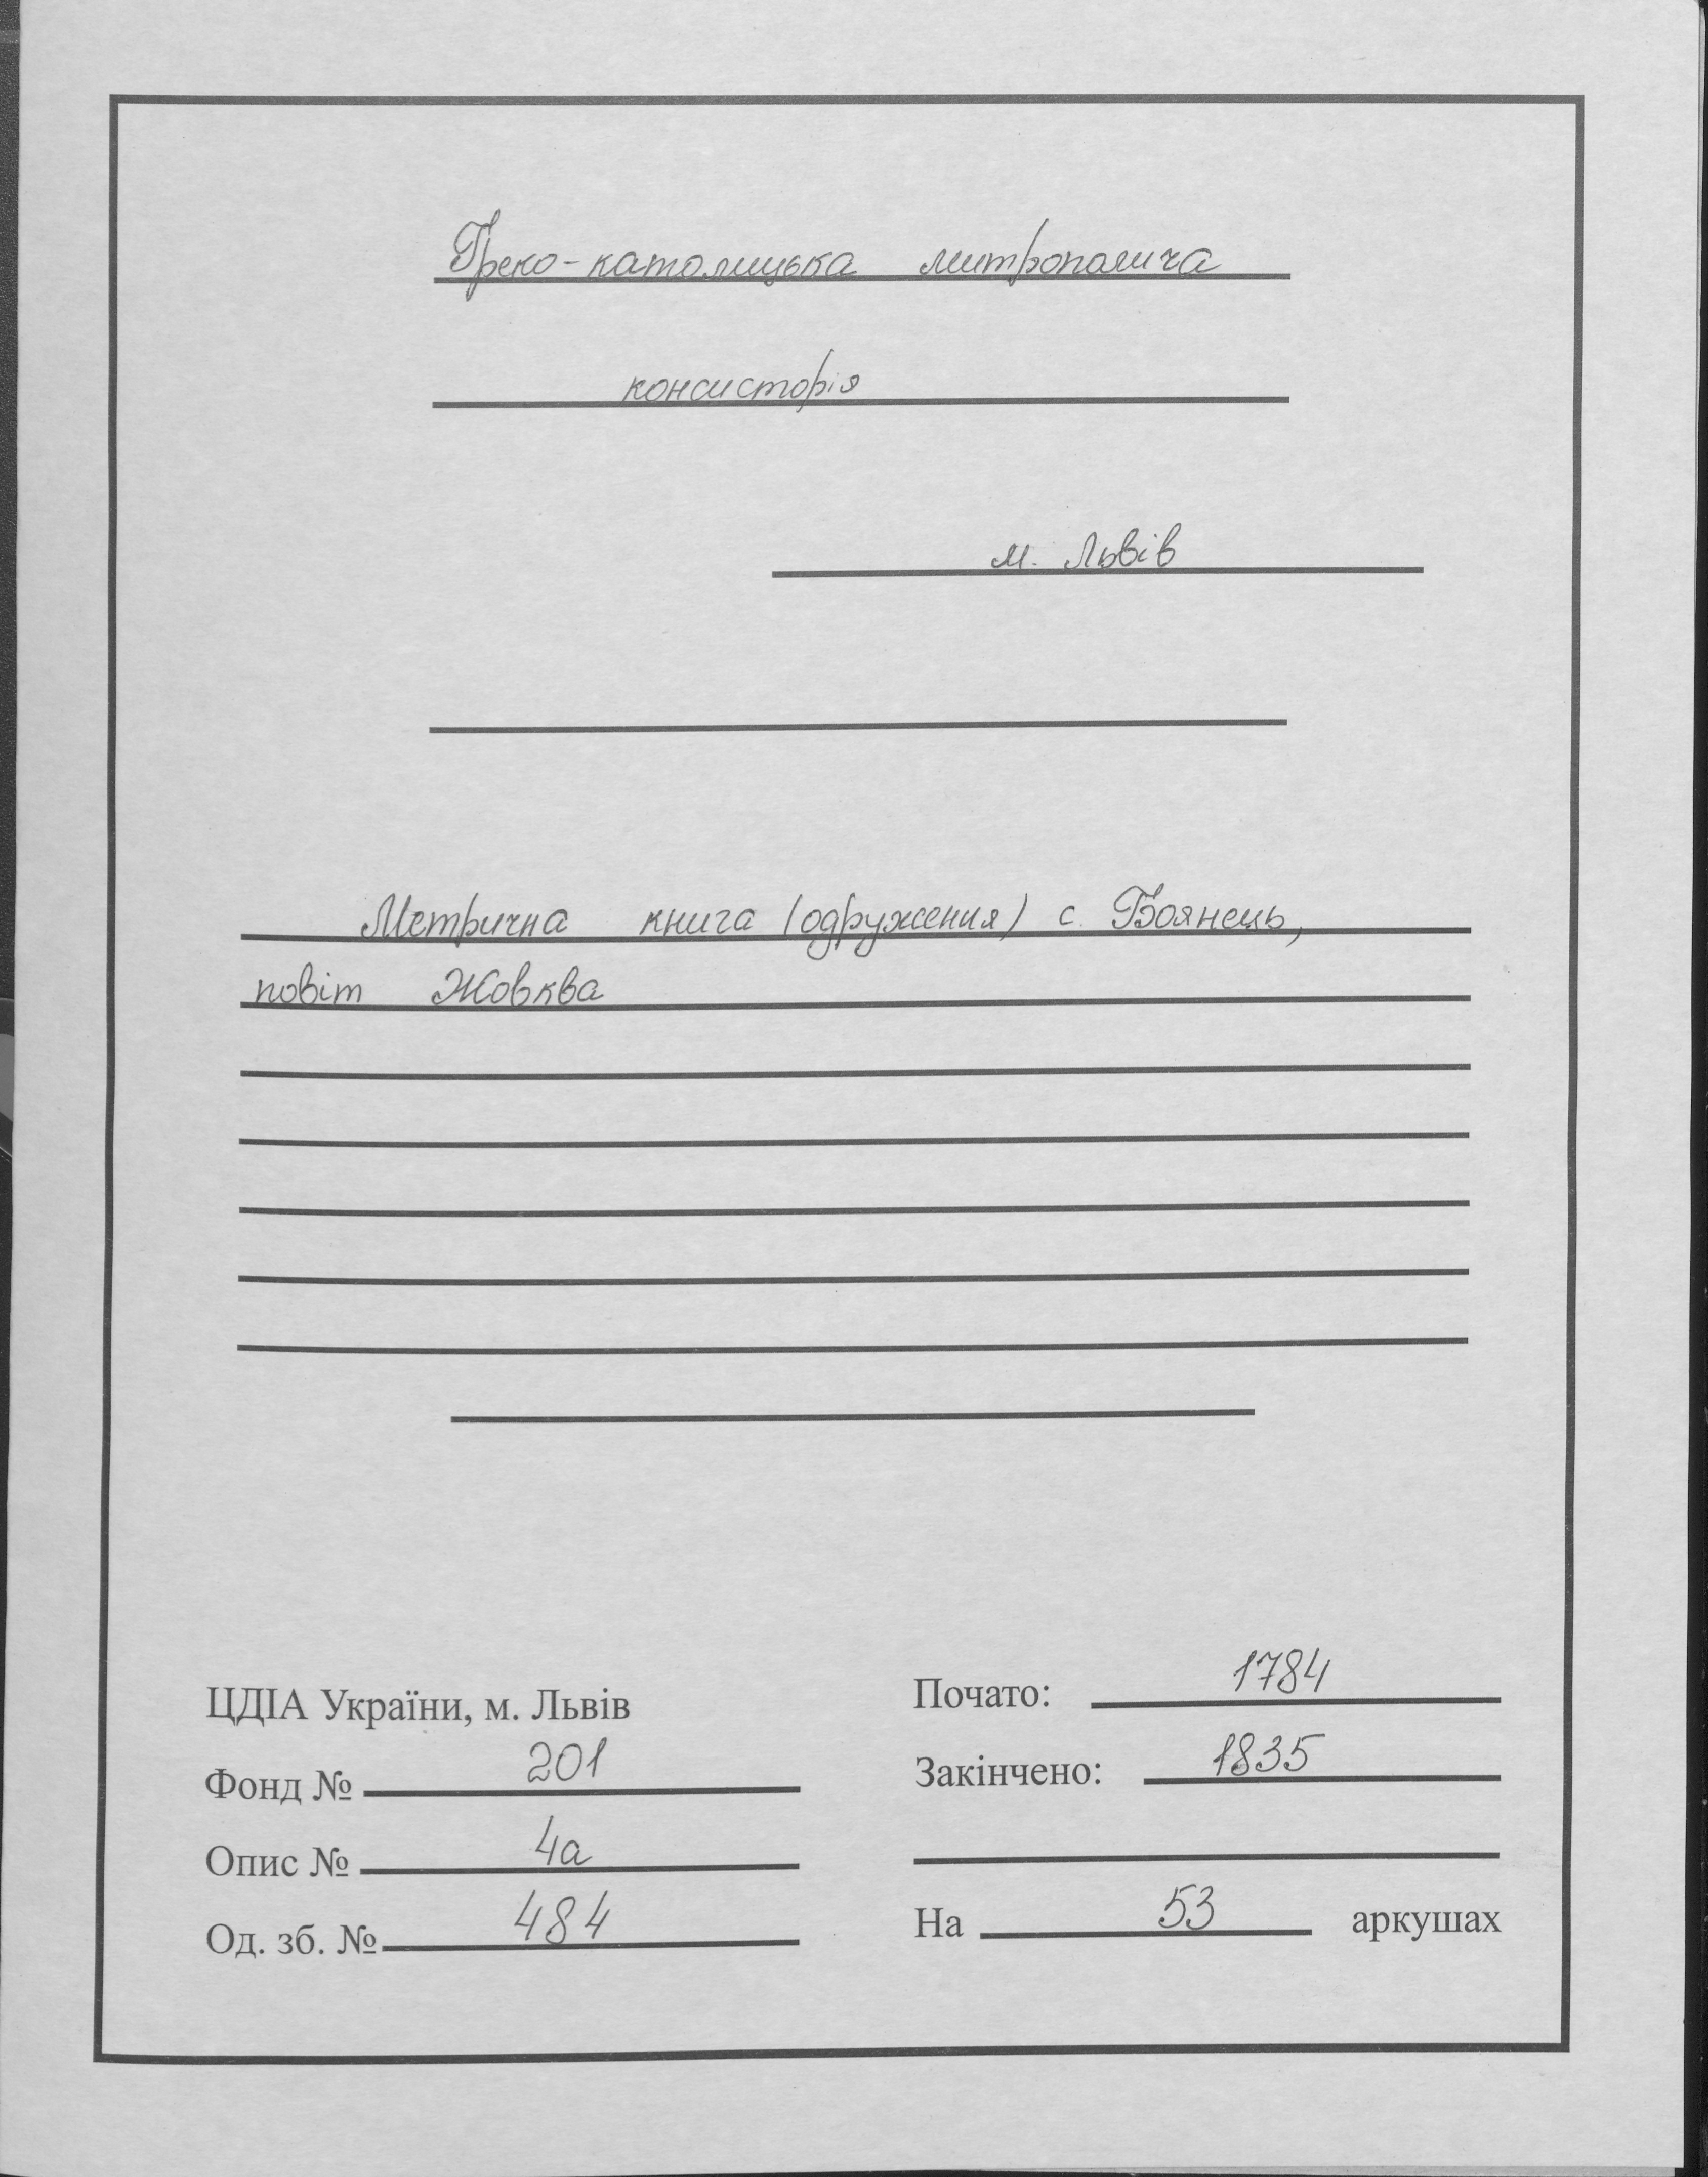 Греко-католицька митрополича
консисторія
м. Львів
Метрична книга (одруження) с. Боянець,
повіт Жовква
ЦДІА України, м. Львів
Фонд № 201
Опис № 4а
Од. зб. № 484
Почато: 1784
Закінчено: 1835
На 53 аркушах